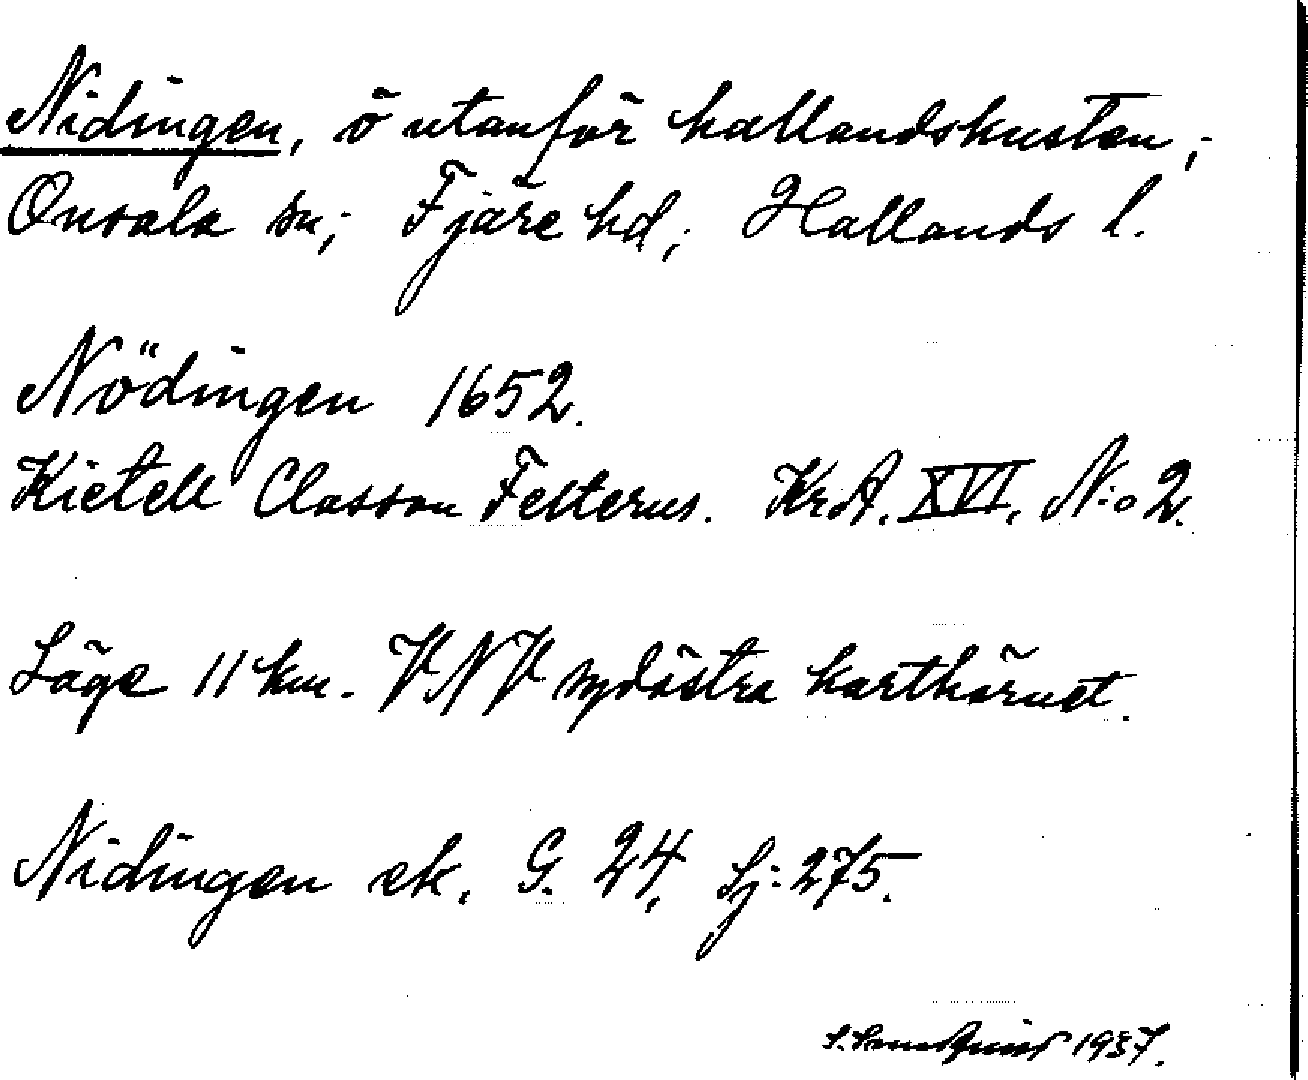 Nidingen, ö utanför hallandskusten;
Onsala sn; Fjäre hd; Hallands l.
Nödingen 1652.
Kietell Classon Felterus. KrA. XVI. N:o 2.
Läge 11 km. VNV sydöstra karthörnet.
Nidingen ek. G. 24. Sj: 275.
1937.